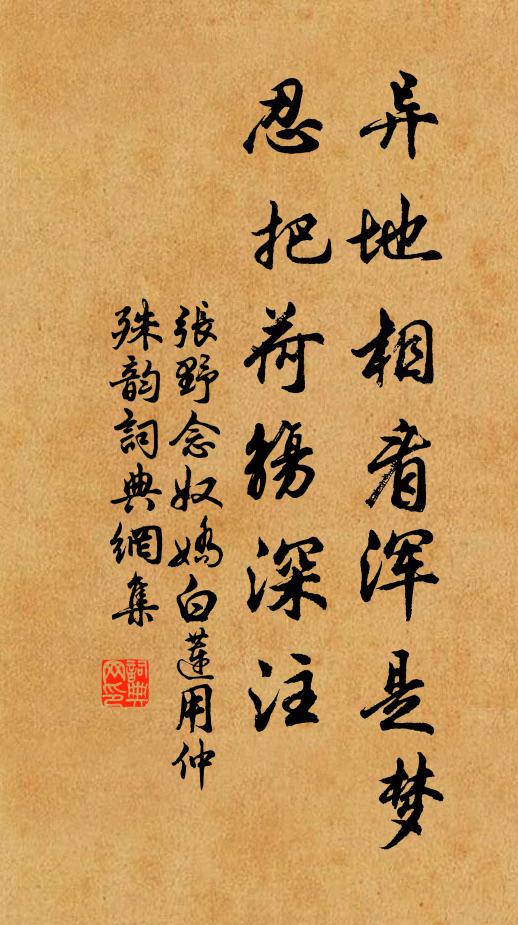 异地相看浑是梦
忍把荷觴深注
張野念奴嬌白蓮用仲
殊韵詞典網集
詞典
网印